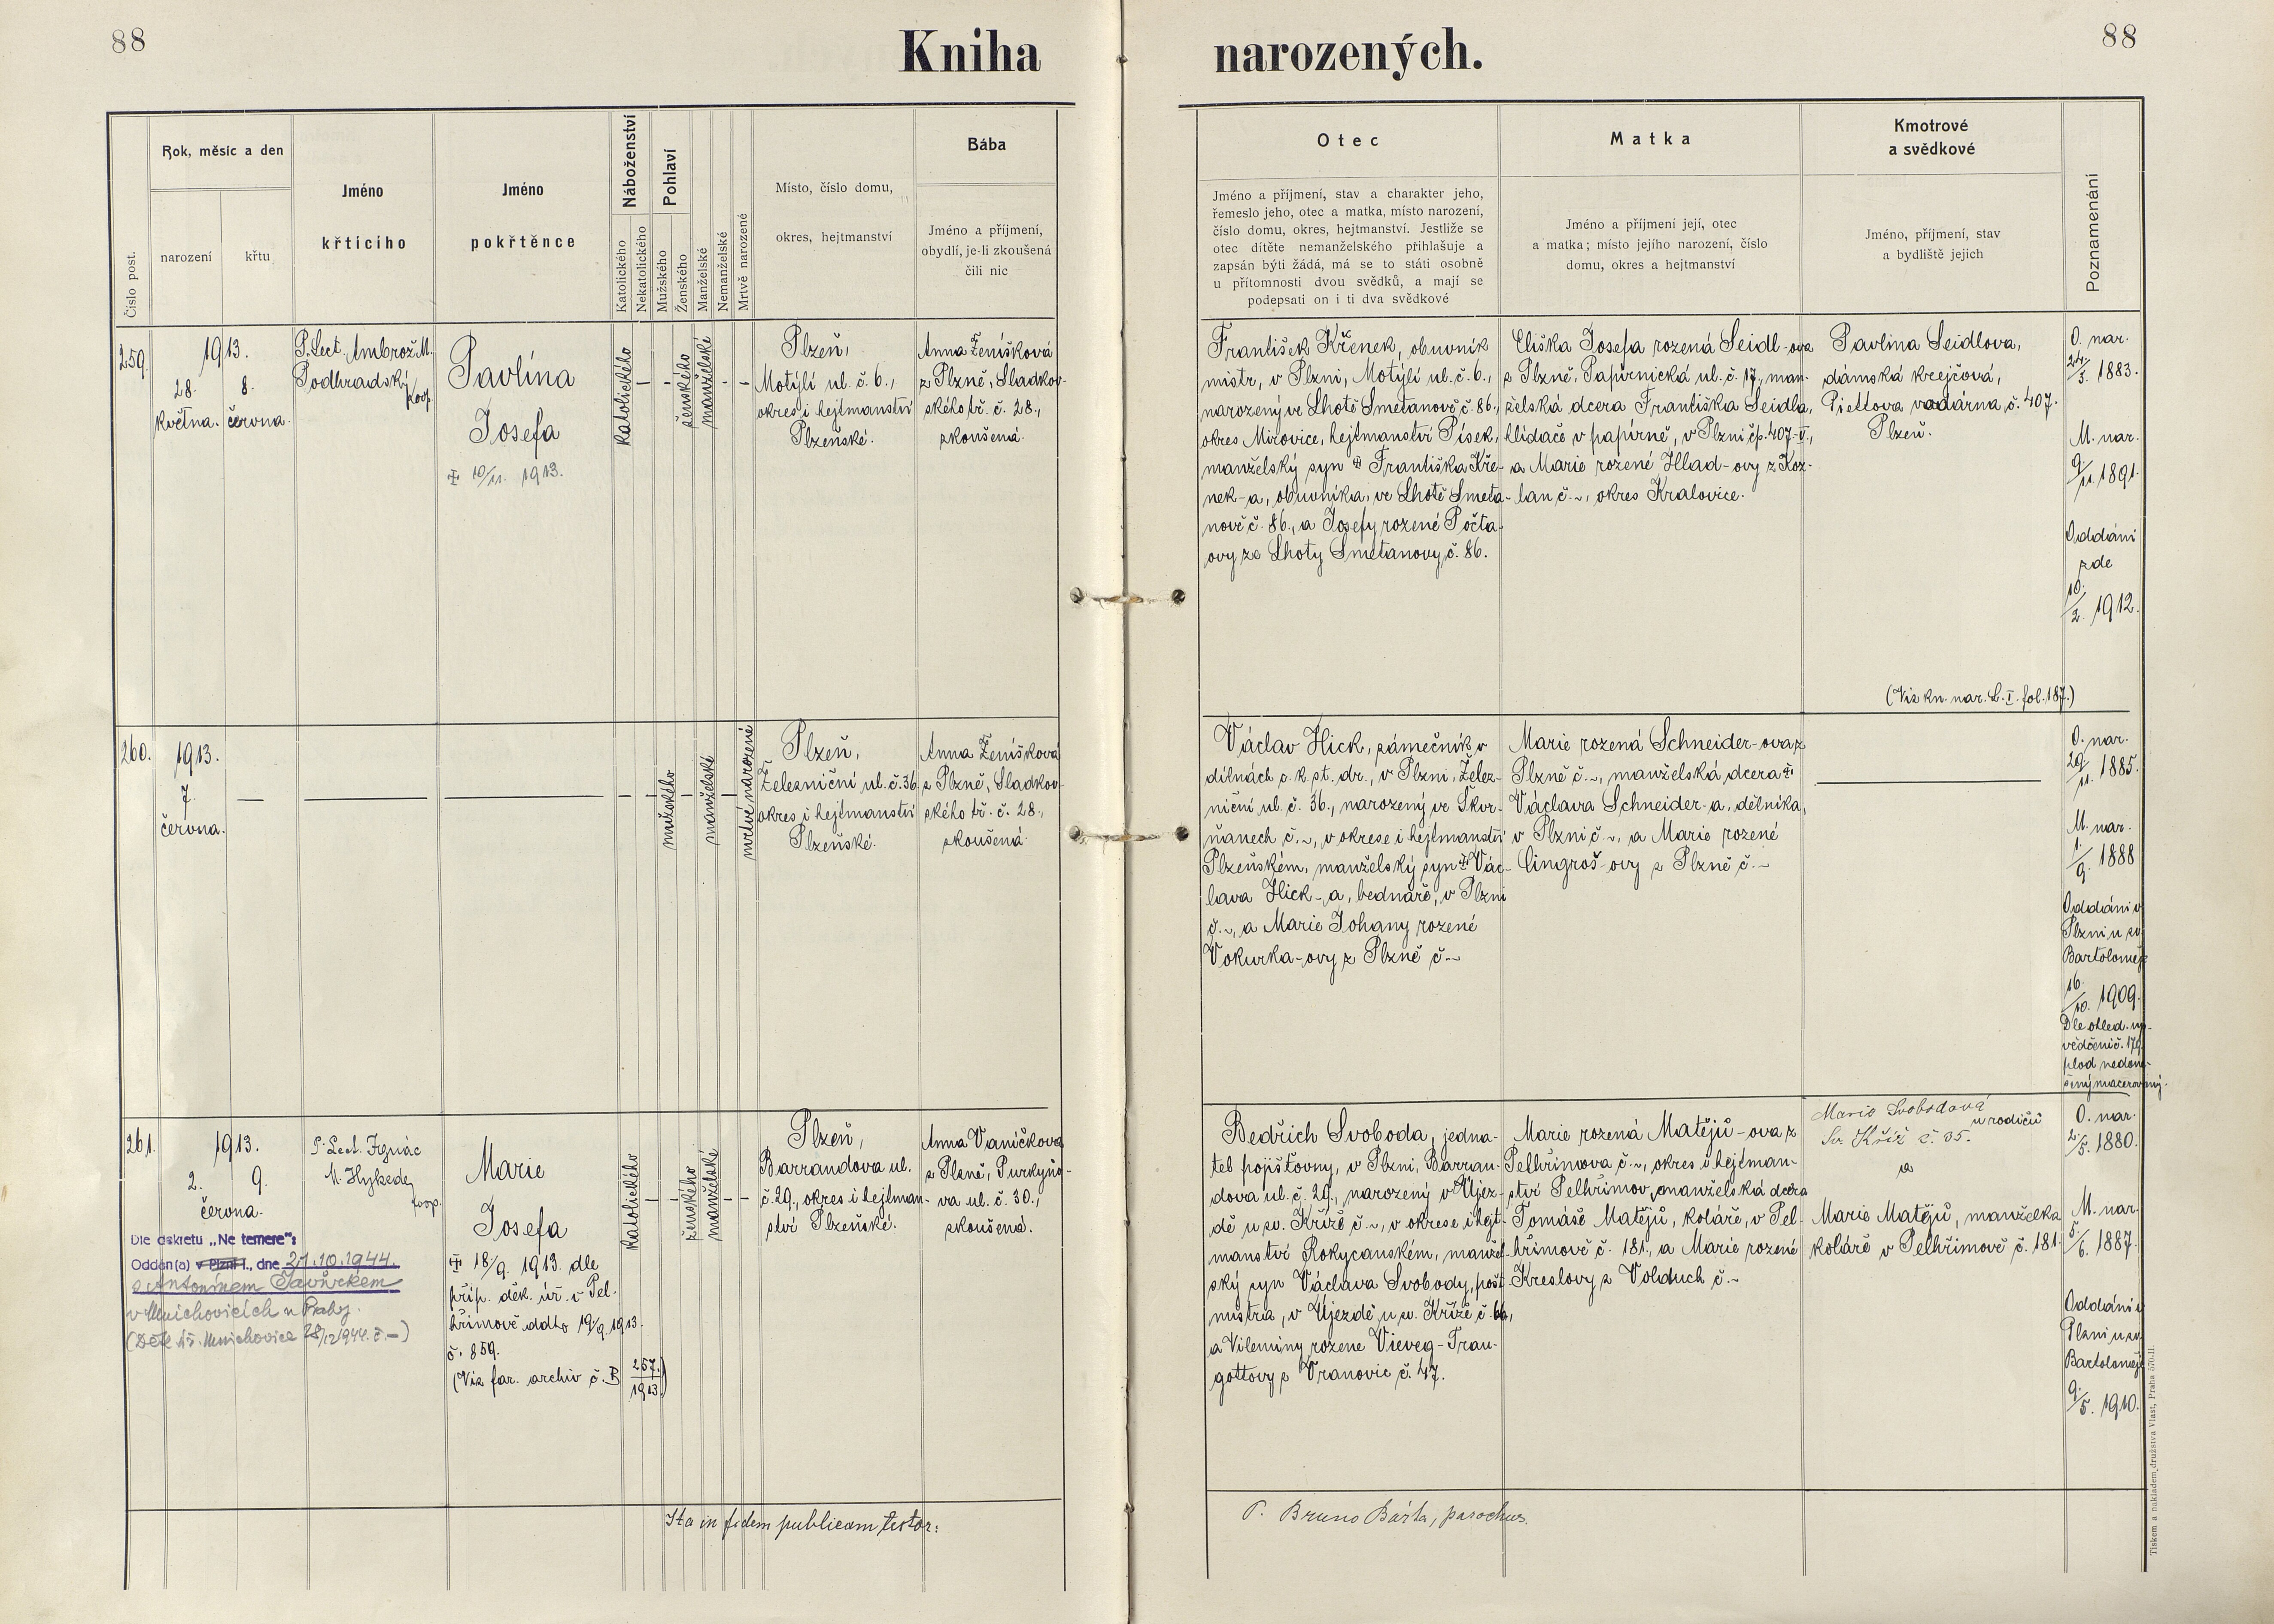 88
Kniha
narozených.
88
Číslo post.
Rok, měsíc a den
narození
křtu
Jméno
křticího
Jméno
pokřtěnce
Náboženství
Katolického
Nekatolického
Pohlaví
Mužského
Ženského
Manželské
Nemanželské
Mrtvě narozené
Místo, číslo domu,
okres, hejtmanství
Bába
Jméno a příjmení,
obydlí, je-li zkoušená
čili nic
Otec
Jméno a příjmení, stav a charakter jeho,
řemeslo jeho, otec a matka, místo narození,
číslo domu, okres, hejtmanství. Jestliže se
otec dítěte nemanželského přihlašuje a
zapsán býti žádá, má se to státi osobně
u přítomnosti dvou svědků, a mají se
podepsati on i ti dva svědkové
Matka
Jméno a příjmení její, otec
a matka; místo jejího narození, číslo
domu, okres a hejtmanství
Kmotrové
a svědkové
Jméno, příjmení, stav
a bydliště jejich
Poznamenání
259.
1913.
28. 8.
května. června.
P. Lect. Ambrož M.
Podhradský
koop.
Pavlína
Josefa
10/11. 1913.
katolického
–
–
ženského
manželské
– –
Plzeň,
Motýlí ul. č. 6.,
okres i hejtmanství
Plzeňské.
Anna Ženíšková
z Plzně, Sladkov-
ského tř. č. 28.,
zkoušená.
František Křenek, obuvník
mistr, v Plzni, Motýlí ul. č. 6.,
narozený ve Lhotě Smetanově č. 86.,
okres Mirovice, hejtmanství Písek,
manželský syn Františka Kře-
nek-a, obuvníka, ve Lhotě Smeta-
nově č. 86., a Josefy rozené Počta-
ovy ze Lhoty Smetanovy č. 86.
Eliška Josefa rozená Seidl-ova
z Plzně, Papírnická ul. č. 17., man-
želská dcera Františka Seidla,
hlídače v papírně, v Plzni čp. 407-II.,
a Marie rozené Hlad-ovy z Koz-
lan č. ~, okres Kralovice.
Pavlina Seidlova,
dámská krejčová,
Piettova vodárna, č. 407.
Plzeň.
(Viz kn. nar. L. I. fol. 187.)
O. nar.
24/3. 1883.
M. nar.
9/11. 1891.
Oddáni
zde
10./2. 1912.
260.
1913.
7.
června.
—
mužského
manželské
mrtvě narozené
Plzeň,
Železniční ul. č. 36
okres i hejtmanství
Plzeňské.
Anna Ženíšková
z Plzně, Sladkov-
ského tř. č. 28.,
zkoušená.
Václav Hick, zámečník v
dílnách c. k. st. dr., v Plzni, Želez-
niční ul. č. 36., narozený ve Škvr-
ňanech č. ~, v okrese i hejtmanství
Plzeňském, manželský syn Vác-
lava Hick-a, bednáře, v Plzni
č. ~, a Marie Johany rozené
Vokurka-ovy z Plzně č. ~
Marie rozená Schneider-ova z
Plzně č. ~, manželská dcera
Václava Schneider-a, dělníka,
v Plzni č. ~, a Marie rozené
Cingroš-ovy z Plzně č. ~
O. nar.
29/11. 1885.
M. nar.
1./9. 1888
Oddáni v
Plzni u sv.
Bartoloměje
16./10. 1909.
Dle ohled. vy-
vědčení č. 179
plod nedono-
šený macerovaný.
261.
1913.
2. 9.
června.
P. Lect. Ignác
M. Hykede,
koop.
Dle dekretu „Ne temere“:
Oddán(a) v Plzni I., dne 21.10.1944.
s Antonínem Šavůrkem
v Mnichovicích u Prahy.
(Děk. úř. Mnichovice 28/12 1944. č. –)
Marie
Josefa
18/9. 1913. dle
příp. děk. úř. v Pel-
hřimově ddto 19/9. 1913.
č. 859.
(Viz far. archiv č. B 257./1913)
katolického
–
–
ženského
manželské
– –
Plzeň,
Barrandova ul.
č. 29., okres i hejtman-
ství Plzeňské.
Anna Vaníčkova
z Plzně, Purkyňo-
va ul. č. 30.,
zkoušená.
Bedřich Svoboda, jedna-
tel pojišťovny, v Plzni, Barran-
dova ul. č. 29., narozený v Újez-
dě u sv. Kříže č. ~, v okrese i hejt-
manství Rokycanském, manžel-
ský syn Václava Svobody, pošt.
mistra, v Újezdě u sv. Kříže č. 66,
a Vileminy rozene Vieveg-Trau-
gottovy z Vranovic č. 47.
Marie rozená Matějů-ova z
Pelhřimova č. ~, okres i hejtman-
ství Pelhřimov, manželská dcera
Tomáše Matějů, koláře, v Pel-
hřimově č. 181., a Marie rozené
Kreslovy z Volduch č. ~
Marie Svobodová
u rodičů
Sv. Kříž č. 35.
a
Marie Matějů, manželka
koláře v Pelhřimově č. 181.
O. nar.
2/5. 1880.
M. nar.
5/6. 1887.
Oddáni v
Plzni u sv.
Bartoloměje
9./5. 1910.
Ita in fidem publicam testor:
P. Bruno Bárta, parochus.
Tiskem a nákladem družstva Vlast, Praha 570-II.